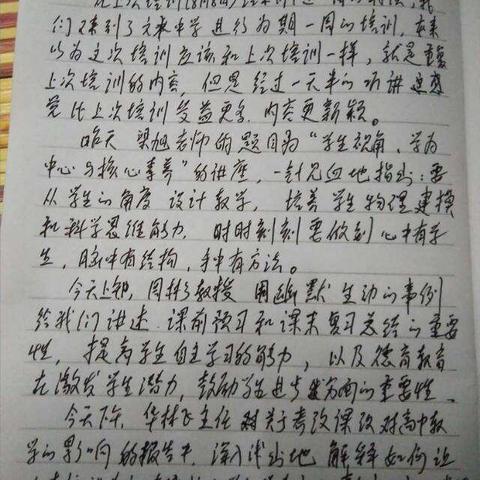 们来到了文来中学进行为期一周的培训，本来
以为这次培训应该和上次培训一样，就是重复
上次培训的内容，但是经过一天半的听讲还是感
觉比上次培训受益更多，内容更新颖。
昨天 梁旭老师的题目为“学生视角、学为
中心与核心素养”的讲座，一针见血地指出：要
从学生的角度设计教学，培养学生物理建模
和科学思维能力，时时刻刻要做到心中有学
生，脑中有结构，手中有方法。
今天上午，教授用幽默生动的事例
给我们讲述课前预习和课末复习总结的重要
性，提高学生自主学习的能力，以及德育教育
在激发学生潜力，鼓励学生进步方面的重要性。
今天下午，华林飞主任对关于考改课改对高中教
学的影响的报告中，深入浅出地解释如何让